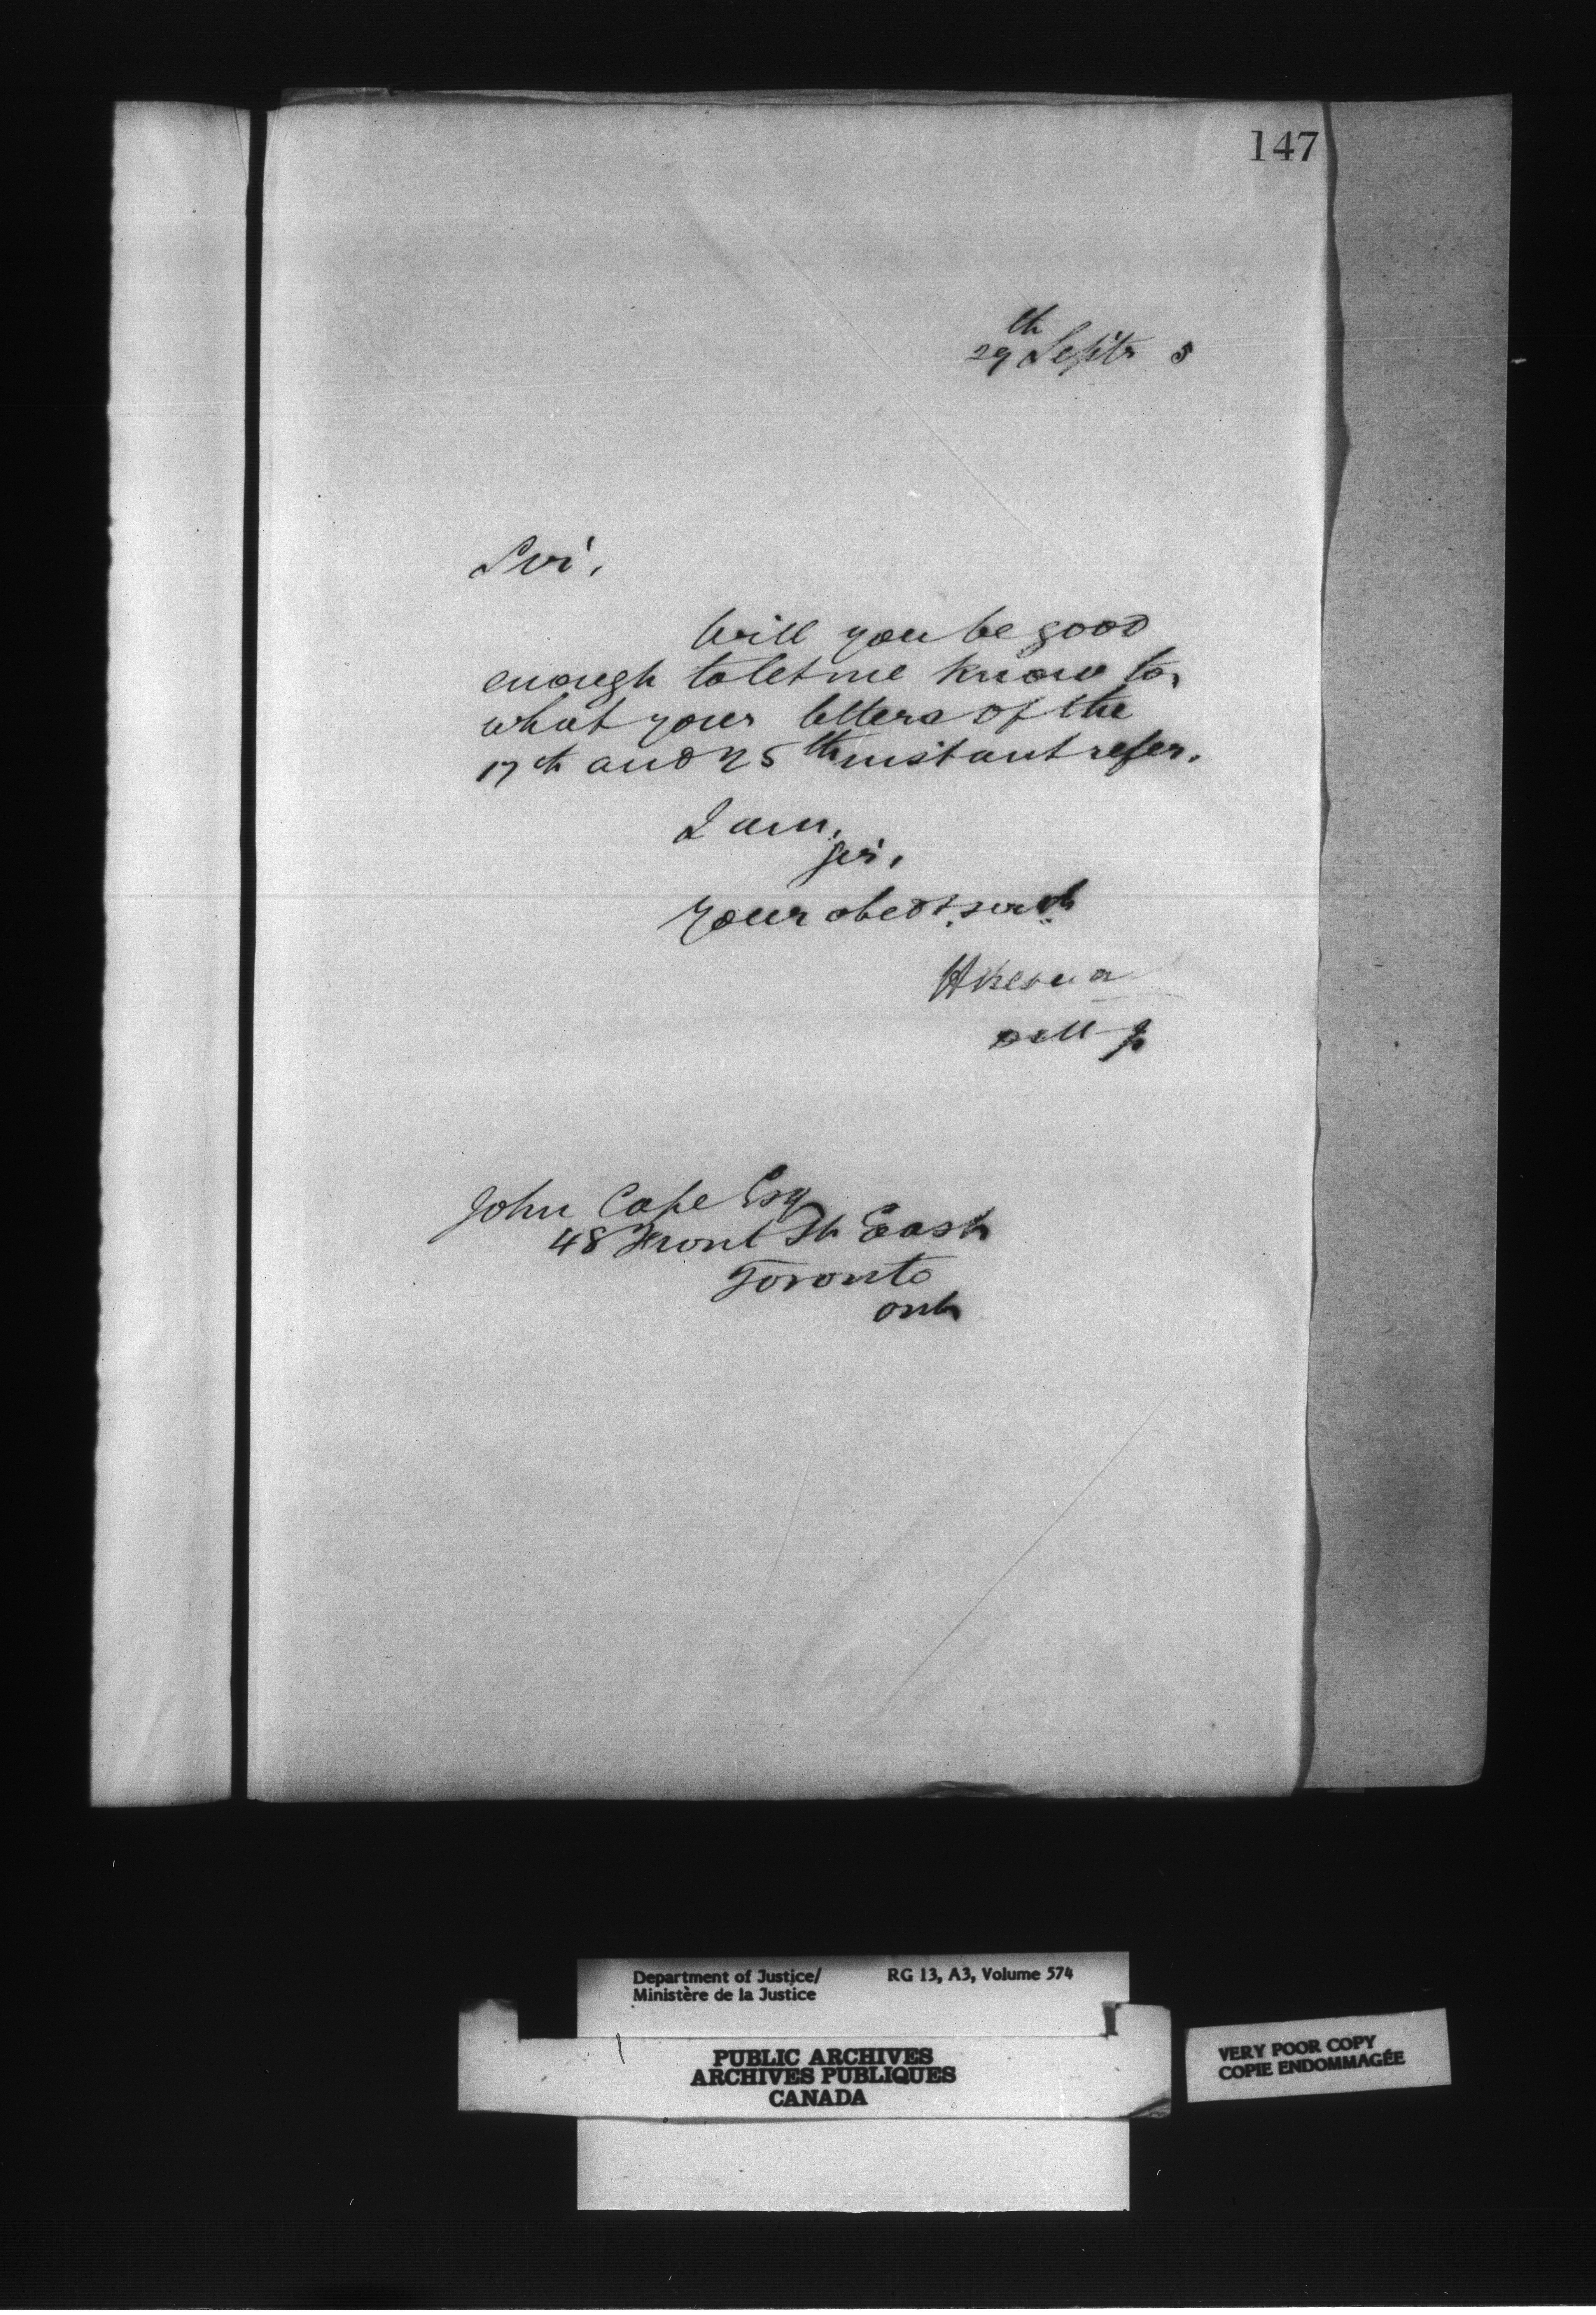 147
29th Septr 5
Sir,
Will you be good
enough to let me know to
what your letters of the
17th and 25th instant refer.
I am,
Sir,
Your obedt. servt
John Cape Esq
48 Front St East
Toronto
Ont
Department of Justice/ RG 13, A3, Volume 574
Ministère de la Justice
PUBLIC ARCHIVES
ARCHIVES PUBLIQUES
CANADA
VERY POOR COPY
COPIE ENDOMMAGÉE